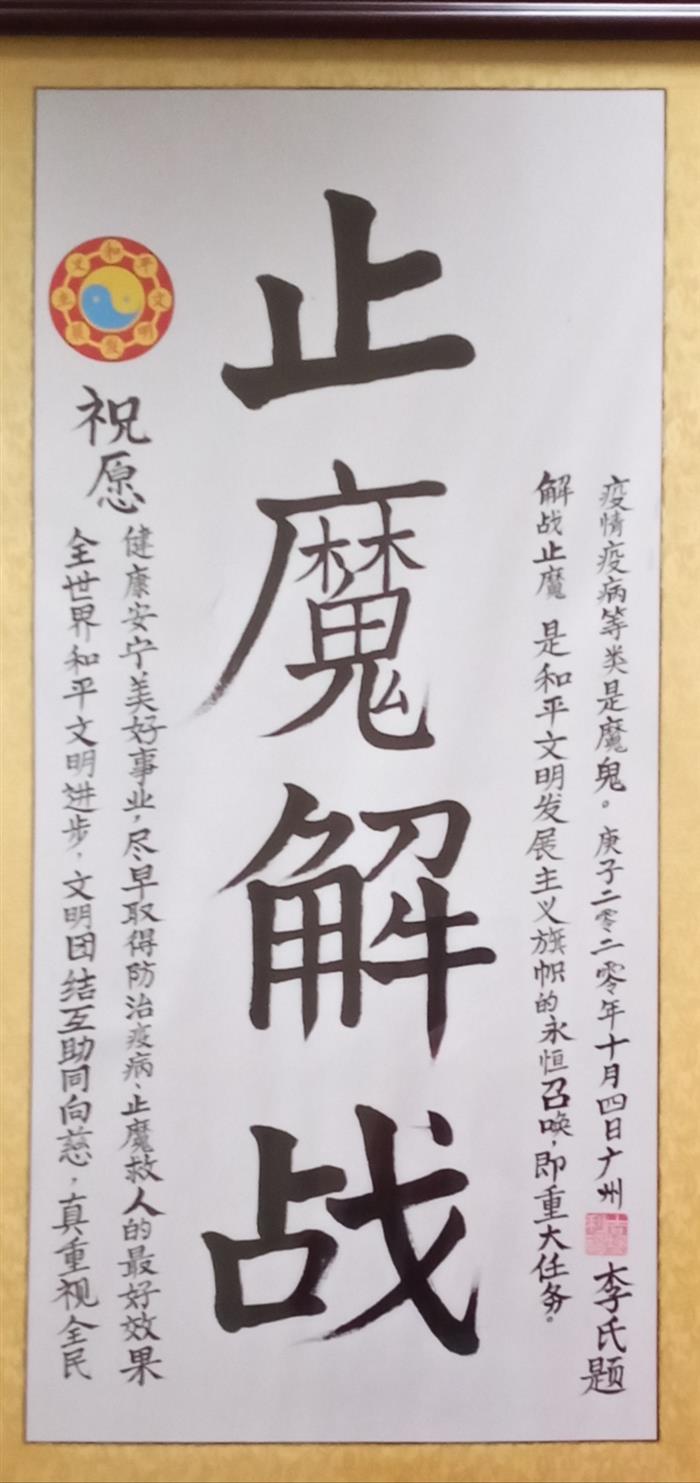 和平文明发展主义
祝愿
全世界和平文明进步，文明团结互助同向慈，真重视全民
健康安宁美好事业，尽早取得防治疫病、止魔救人的最好效果
止魔解战
解战止魔 是和平文明发展主义旗帜的永恒召唤，即重大任务。
疫情疫病等类是魔鬼。庚子二零二零年十月四日广州 李氏题